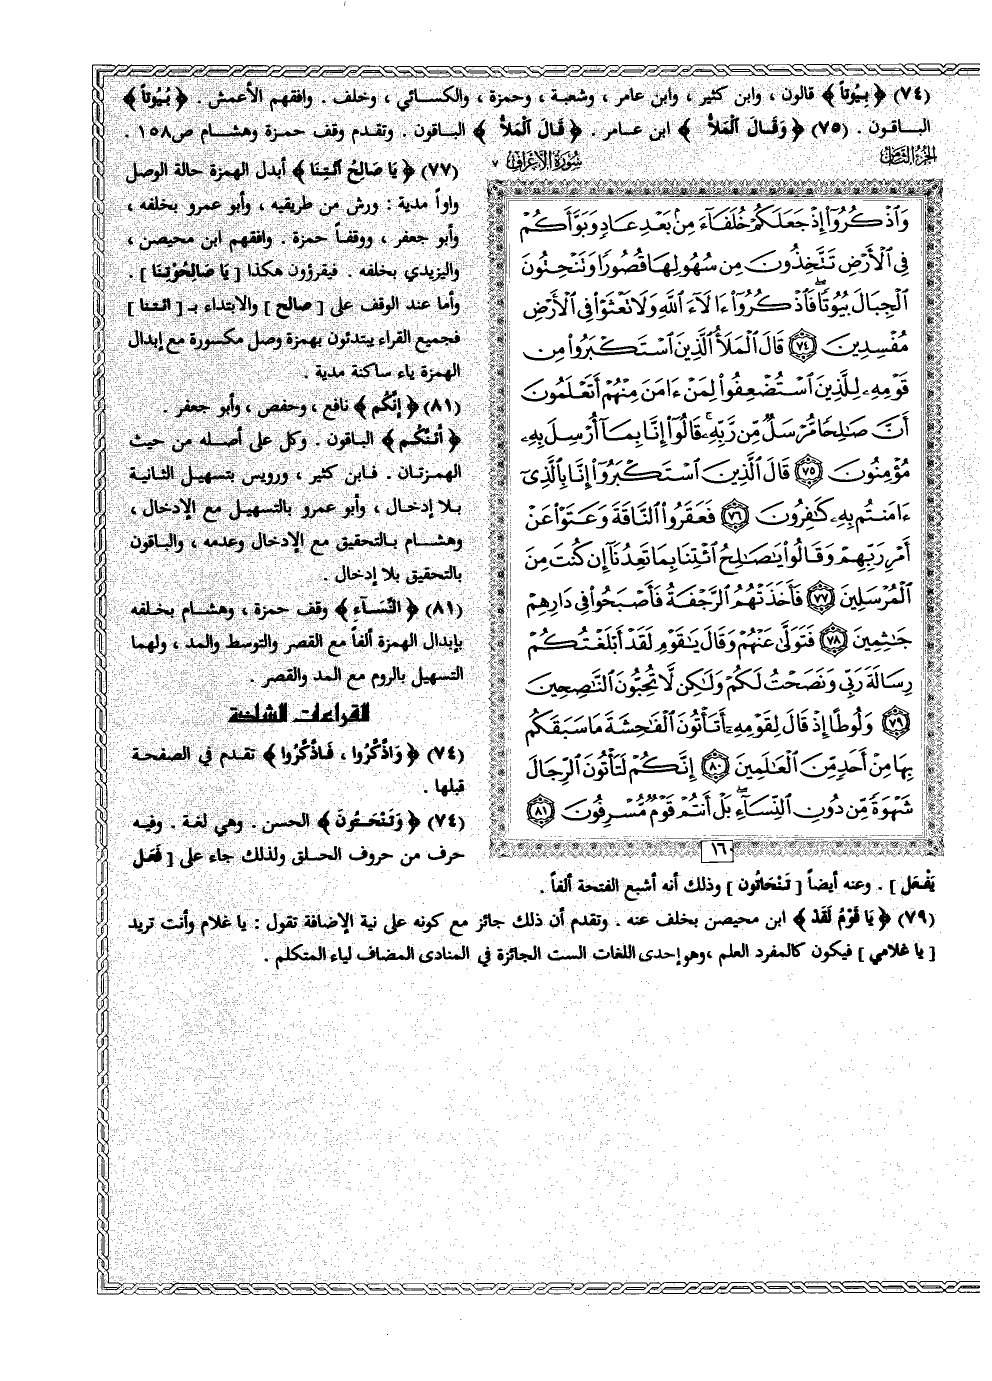 (٧٤) ﴿ بِيُوتاً ﴾ قالون ، وابن كثير ، وابن عامر ، وشعبة ، وحمزة ، والكسائي ، وخلف . وافقهم الأعمش . ﴿ بُيُوتاً ﴾
الباقون . (٧٥) ﴿ وَقَالَ الْمَلَأُ ﴾ ابن عامر . ﴿ قَالَ الْمَلَأُ ﴾ الباقون . وتقدم وقف حمزة وهشام ص١٥٨ .
الجزء الثامن
سورة الأعراف ٧
وَاذْكُرُوا إِذْ جَعَلَكُمْ خُلَفَاءَ مِنْ بَعْدِ عَادٍ وَبَوَّأَكُمْ
فِي الْأَرْضِ تَتَّخِذُونَ مِن سُهُولِهَا قُصُورًا وَتَنْحِتُونَ
الْجِبَالَ بُيُوتًا فَاذْكُرُوا ءَالَاءَ اللَّهِ وَلَا تَعْثَوْا فِي الْأَرْضِ
مُفْسِدِينَ ٧٤ قَالَ الْمَلَأُ الَّذِينَ اسْتَكْبَرُوا مِن
قَوْمِهِ لِلَّذِينَ اسْتُضْعِفُوا لِمَنْ ءَامَنَ مِنْهُمْ أَتَعْلَمُونَ
أَنَّ صَالِحًا مُّرْسَلٌ مِّن رَّبِّهِ قَالُوا إِنَّا بِمَا أُرْسِلَ بِهِ
مُؤْمِنُونَ ٧٥ قَالَ الَّذِينَ اسْتَكْبَرُوا إِنَّا بِالَّذِي
ءَامَنتُم بِهِ كَافِرُونَ ٧٦ فَعَقَرُوا النَّاقَةَ وَعَتَوْا عَنْ
أَمْرِ رَبِّهِمْ وَقَالُوا يَاصَالِحُ ائْتِنَا بِمَا تَعِدُنَا إِن كُنتَ مِنَ
الْمُرْسَلِينَ ٧٧ فَأَخَذَتْهُمُ الرَّجْفَةُ فَأَصْبَحُوا فِي دَارِهِمْ
جَاثِمِينَ ٧٨ فَتَوَلَّى عَنْهُمْ وَقَالَ يَاقَوْمِ لَقَدْ أَبْلَغْتُكُمْ
رِسَالَةَ رَبِّي وَنَصَحْتُ لَكُمْ وَلَاكِن لَّا تُحِبُّونَ النَّاصِحِينَ
٧٩ وَلُوطًا إِذْ قَالَ لِقَوْمِهِ أَتَأْتُونَ الْفَاحِشَةَ مَا سَبَقَكُم
بِهَا مِنْ أَحَدٍ مِّنَ الْعَالَمِينَ ٨٠ إِنَّكُمْ لَتَأْتُونَ الرِّجَالَ
شَهْوَةً مِّن دُونِ النِّسَاءِ بَلْ أَنتُمْ قَوْمٌ مُّسْرِفُونَ ٨١
١٦٠
(٧٧) ﴿ يَا صَالِحُ ائْتِنَا ﴾ أبدل الهمزة حالة الوصل
واواً مدية : ورش من طريقيه ، وأبو عمرو بخلفه ،
وأبو جعفر ، ووقفاً حمزة . وافقهم ابن محيصن ،
واليزيدي بخلفه . فيقرؤون هكذا [ يَا صَالِحُوْتِنَا ] .
وأما عند الوقف على [ صالح ] والابتداء بـ [ ائتنا ]
فجميع القراء يبتدئون بهمزة وصل مكسورة مع إبدال
الهمزة ياء ساكنة مدية .
(٨١) ﴿ إِنَّكُم ﴾ نافع ، وحفص ، وأبو جعفر .
﴿ أَئِنَّكُم ﴾ الباقون . وكل على أصله من حيث
الهمزتان . فابن كثير ، ورويس بتسهيل الثانية
بلا إدخال ، وأبو عمرو بالتسهيل مع الإدخال ،
وهشام بالتحقيق مع الإدخال وعدمه ، والباقون
بالتحقيق بلا إدخال .
(٨١) ﴿ النِّسَآءِ ﴾ وقف حمزة ، وهشام بخلفه
بإبدال الهمزة ألفاً مع القصر والتوسط والمد ، ولهما
التسهيل بالروم مع المد والقصر .
القراءات الشاذة
(٧٤) ﴿ وَاذْكُرُوا ، فَاذْكُرُوا ﴾ تقدم في الصفحة
قبلها .
(٧٤) ﴿ وَتَنْحَتُونَ ﴾ الحسن . وهي لغة . وفيه
حرف من حروف الحلق ولذلك جاء على [ فَعَل
يَفْعَل ] . وعنه أيضاً [ تَنْحَاتُون ] وذلك أنه أشبع الفتحة ألفاً .
(٧٩) ﴿ يَا قَوْمُ لَقَدْ ﴾ ابن محيصن بخلف عنه . وتقدم أن ذلك جائز مع كونه على نية الإضافة تقول : يا غلام وأنت تريد
[ يا غلامي ] فيكون كالمفرد العلم ،وهو إحدى اللغات الست الجائزة في المنادى المضاف لياء المتكلم .